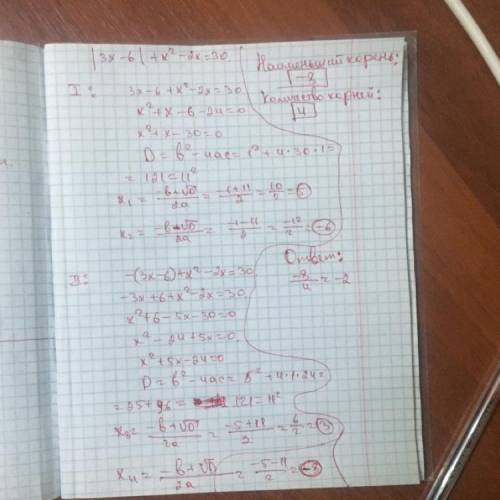 |3x-6|+x²-2x=30.
Наименьший корень:
-8
Количество корней:
4
I:
3x-6+x²-2x=30
x²+x-6-24=0
x²+x-30=0
D=b²-4ac=1²+4·30·1=
=121=11²
x₁=(-b+√D)/2a=(-1+11)/2=10/2=5
x₂=(-b-√D)/2a=(-1-11)/2=-12/2=-6
II:
-(3x-6)+x²-2x=30
-3x+6+x²-2x=30
x²+6-5x-30=0
x²-24+5x=0
x²+5x-24=0
D=b²-4ac=5²+4·1·24=
=25+96=121=11²
x₃=(-b+√D)/2a=(-5+11)/2=6/2=3
x₄=(-b-√D)/2a=(-5-11)/2=-8
Ответ:
-8/4=-2